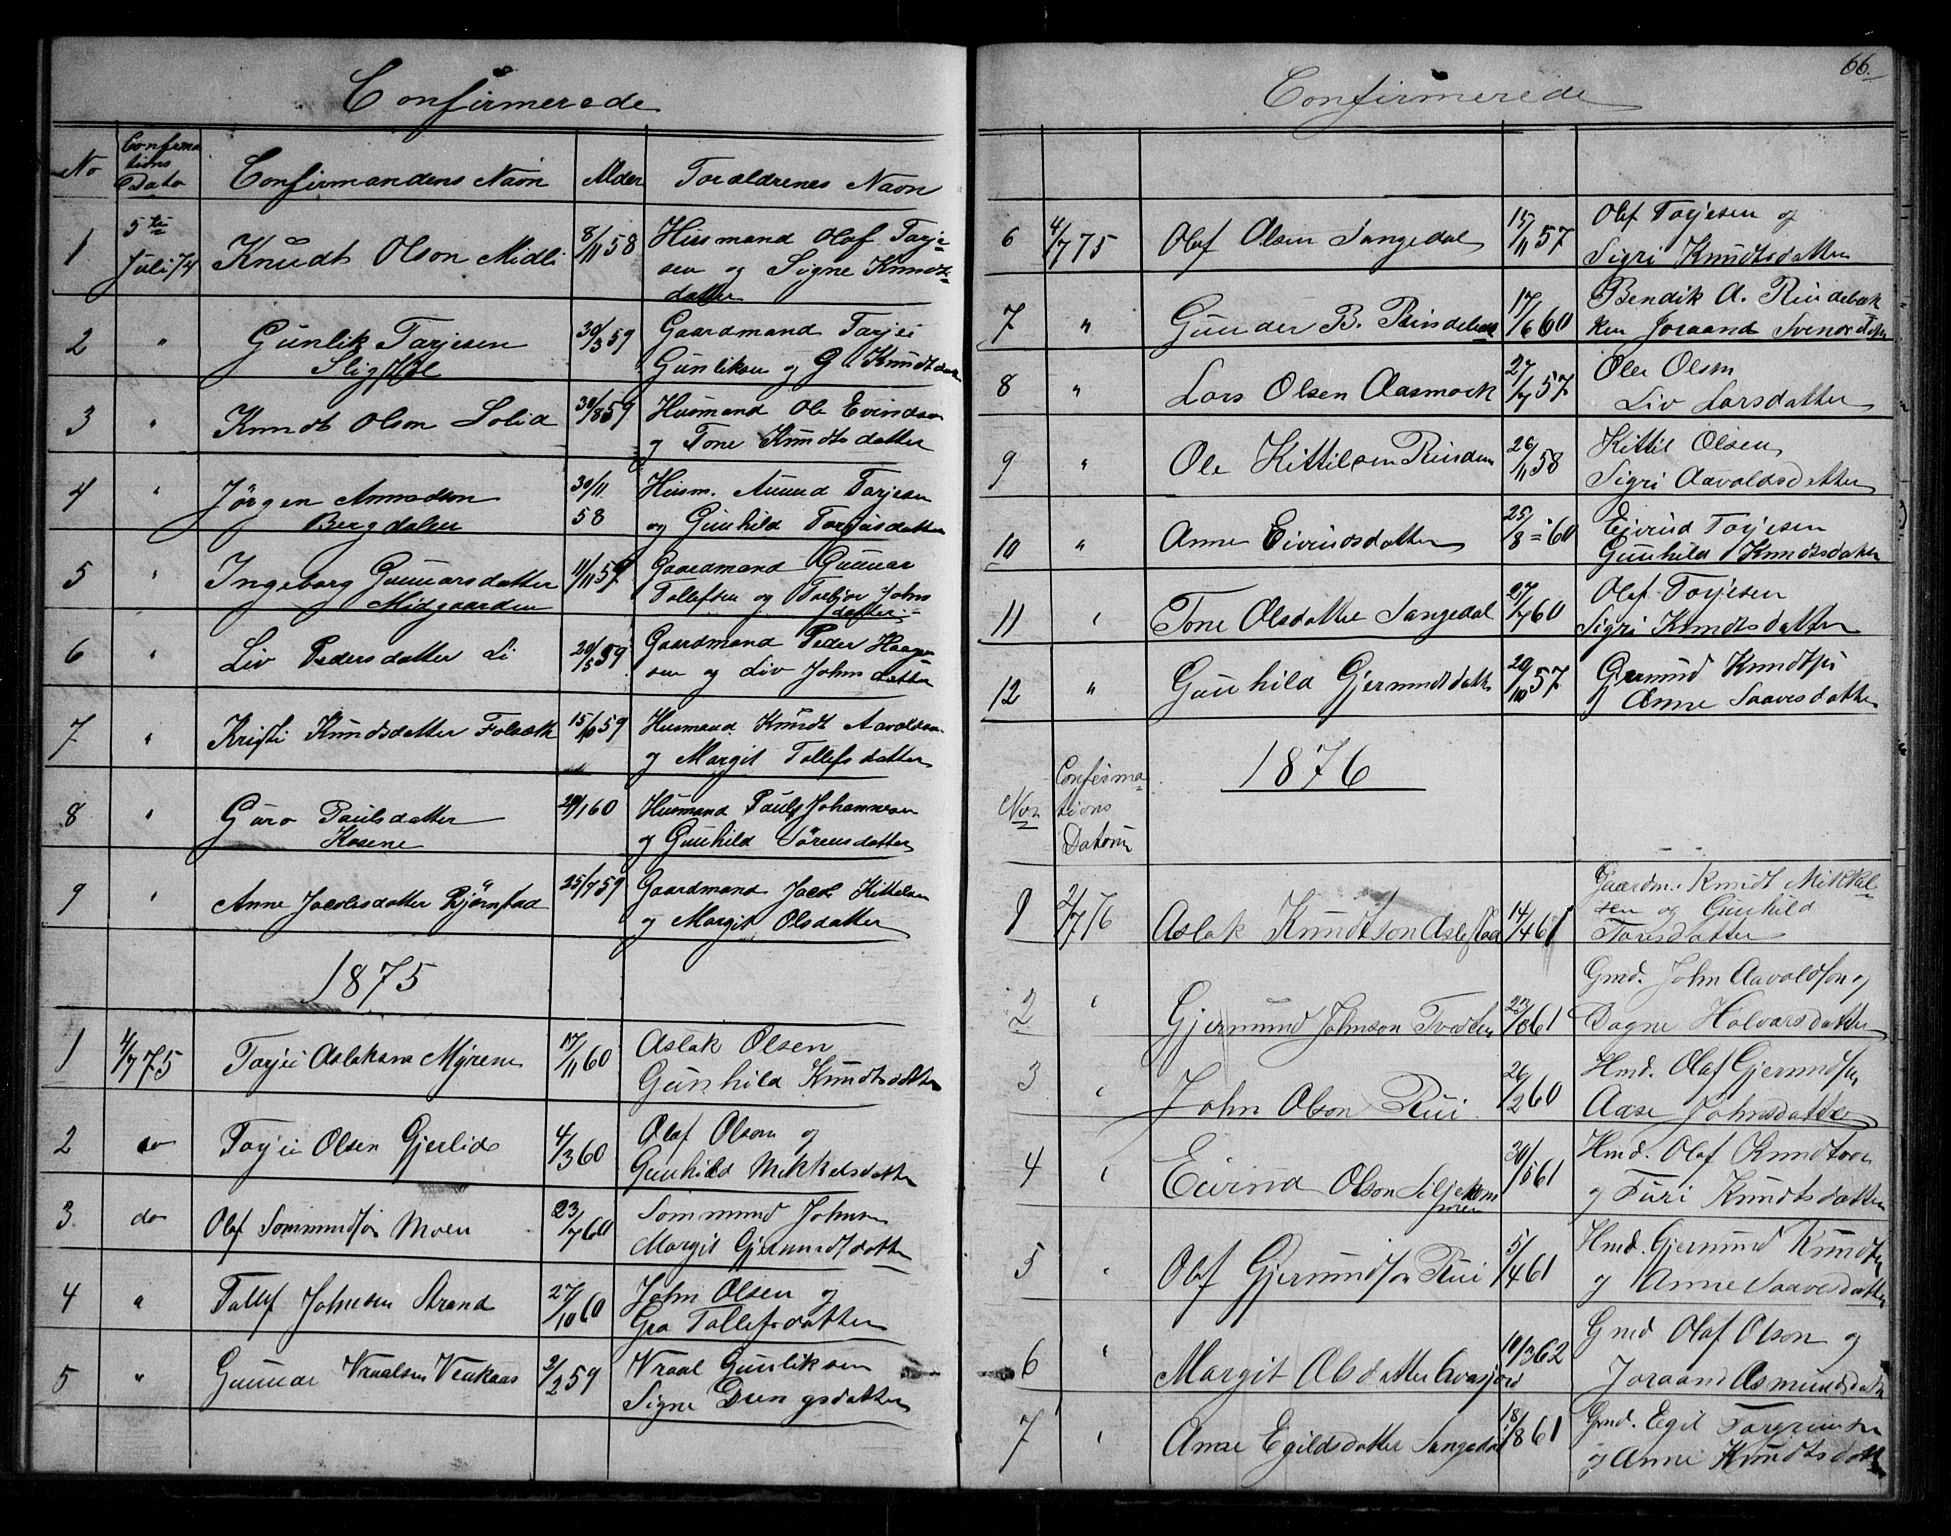 Confirmerede
No Confirmations Dato Confirmandens Navn Alder Forældrenes Navn
1 5te Juli 74 Knudt Olson Midli 8/11 58 Husmand Olaf Tarje-
sen og Signe Knudts-
datter
2 " Gunlik Tarjesen 30/3 59 Gaardmand Tarjei
Gunliksen og G. Knudtdatt
3 " Knudt Olson Lolid 30/8 59 Husmand Ole Evindsen
og Tone Knudtsdatter
4 " Jörgen Amundsen 30/11 Husm. Amund Tarjesen
Bergdalen 58 og Gunhild Tarjeisdatter
5 " Ingeborg Gunnarsdatter 11/11 57 Gaardmand Gunnar
Midgaarden Tollefsen og Torbjør Johns
datter
6 " Liv Pedersdatter Li 20/5 59 Gaardmand Peder Haagen
sen og Liv Johnsdatter
7 " Kristi Knudsdatter Folsæth 15/10 59 Husmand Knudt Aavoldsen
og Margit Tollefsdatter
8 " Guro Paulsdatter 29/1 60 Husmand Pauls Johannesen
Kosene og Gunhild Sörensdatter
9 " Anne Jacobsdatter Björnstad 25/7 59 Gaardmand Jacob Kittelsen
og Margit Olsdatter
1875
1 4/7 75 Tarjei Aslaksen Myrene 17/11 60 Aslak Olsen
Gunhild Knudtsdatter
2 do Tarjei Olsen Gjerlid 4/3 60 Olaf Olson og
Gunhild Mikkelsdatter
3 do Olaf Sommundsøn Moen 23/7 60 Sommund Johnsen
Margit Gjermundsdatter
4 " Tallef Johnsen Strand 27/10 60 John Olsen og
Gro Tallefsdatter
5 " Gunnar Vraalsen Venkaas 2/2 59 Vraal Gunliksen
Signe Drengsdatter
66.
Confirmerede
6 4/7 75 Olaf Olsen Sangedal 15/11 57 Olaf Tarjesen og
Sigri Knudtsdatter
7 " Gunder B. Rindebæk 17/6 60 Bendik A. Rindebæk
ken Joraand Svendsdtr
8 " Lars Olsen Aasmork 27/7 57 Ole Olsen
Liv Larsdatter
9 " Ole Kittilsen Rinden 26/11 58 Kittil Olsen
Sigri Aavoldsdatter
10 " Anne Eivindsdatter 25/8=60 Eivind Tarjesen
Gunhild Knudtsdatter
11 " Tone Olsdatter Sangedal 27/7 60 Olaf Tarjesen
Sigri Knudtsdatter
12 " Gunhild Gjermundsdatter 20/10 57 Gjermund Knudtsen
Anne Saavesdatter
1876
Nor Confirmations Datom
1 2/7 76 Aslak Knudtson Aslestad 14/4 61 Gaardm. Knudt Mikkel-
sen og Gunhild
Taresdatter
2 " Gjermund Johnson Tveten 23/10 61 Gmd. John Aavoldson og
Dagne Halvorsdatter
3 " John Olson Rui 26/2 60 Hmd. Olaf Gjermundsen
Aase Johnsdatter
4 " Eivind Olson 30/5 61 Hmd. Olaf Knudtson
og Turi Knudtsdatter
5 " Olaf Gjermundson Rui 5/4 61 Hmd. Gjermund Knudtsen
og Anne Saavesdatter
6 " Margit Olsdatter 10/3 62 Gmd Olaf Olson og
Joraand Asmundsdatt
7 " Anne Egildsdatter Sangedal 18/8 61 Gmd. Egil Torgrimsen
og Anne Knudtsdatt